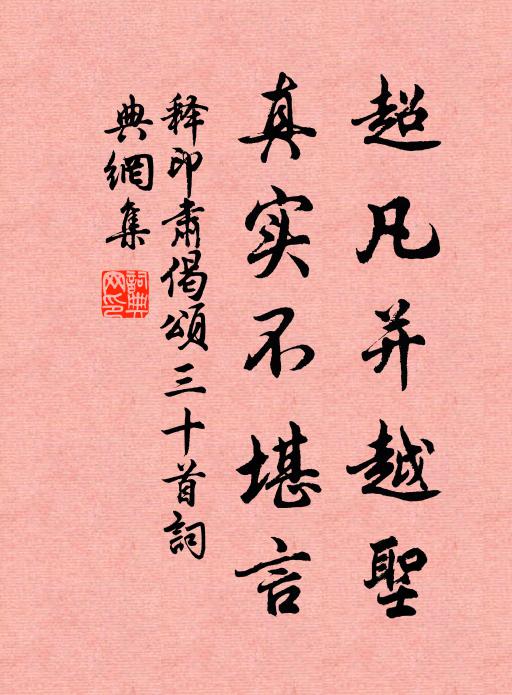 超凡并越聖
真实不堪言
释印肃偈頌三十首詞
典網集
詞典网印